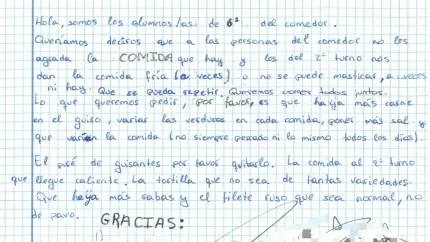 Hola, somos los alumnos/as. de 6º. del comedor.
Queríamos deciros que a las personas del comedor no les
agrada la COMIDA que hay y los del 2º turno nos
dan la comida fría (a veces) o no se puede masticar, a veces
ni hay. Que se pueda repetir. Queremos comer todos juntos.
Lo que queremos pedir, por favor, es que haya más carne
en el guiso, variar las verduras en cada comida, poner más sal y
que varíen la comida (no siempre pescado ni lo mismo todos los días).
El puré de guisantes por favor quitarlo. La comida al 2º turno
que llegue caliente. La tortilla que no sea de tantas variedades.
Que haya más sabas y el filete ruso que sea normal, no
de pavo. GRACIAS: